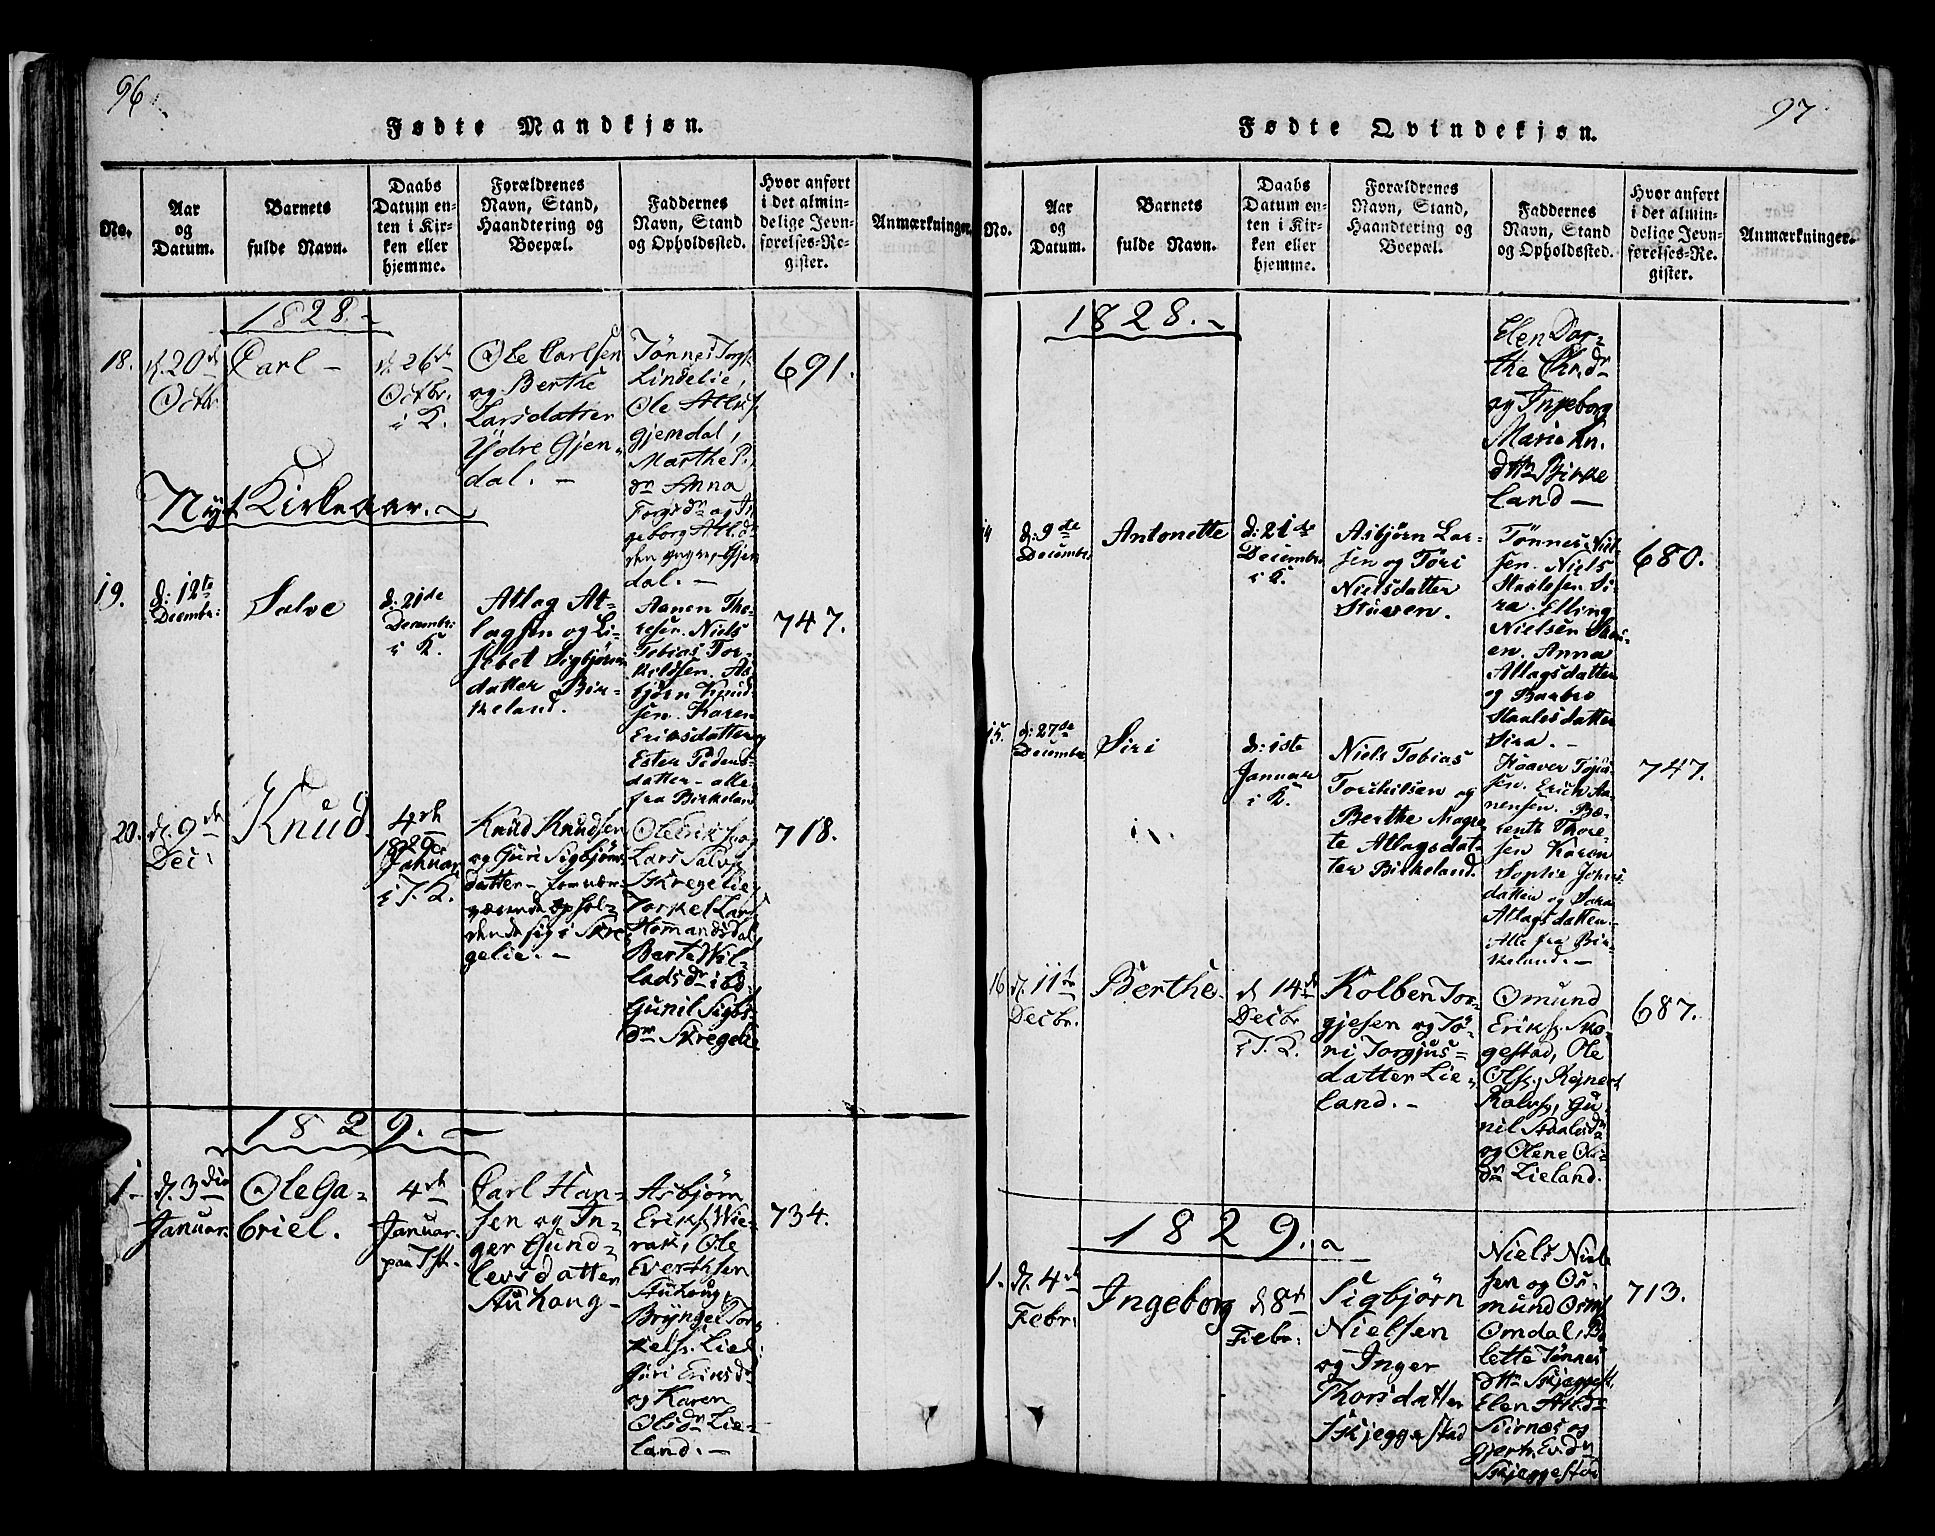 96
Fødte Mandkjøn.
No.
Aar
og
Datum.
Barnets
fulde Navn.
Daabs
Datum en-
ten i Kir-
ken eller
hjemme.
Forældrenes
Navn, Stand,
Haandtering og
Boepæl.
Faddernes
Navn, Stand
og Opholdssted.
Hvor anført
i det almin-
delige Jevn-
førelses-Re-
gister.
Anmærkninger.
1828.
18.
d. 20de
Octbr.
Carl
d. 26de
Octbr.
i K.
Ole Carlsen
og Berthe
Larsdatter
Ydre Gjen-
dal.
Tønnes Torgs.
Lindelie,
Ole Atlaks.
Gjendal,
Marthe P.
dr Anna
Torgsdr og In
geborg Atl.dr
Gjen
dal.
691.
Nyt Kirkeaar.
19.
d: 12te
Decembr:
Salve
d: 21de
Decembr:
i K.
Atlag At-
lagsen og Li-
sebet Sigbjørns
datter Bir-
keland.
Aanen Tho-
resen. Niels
Tobias Tor-
keldsen. As-
bjørn Knud
sen. Karen
Eriksdatter og
Ester Peders
datter - alle
fra Birkeland
747.
20.
d. 9de
Dec:
Knud.
4de
Januar
1829
i T. K.
Knud Knudsen
og Guri Sigbjørns
datter - for nær-
værende ophol-
dende sig i Skre
gelie.
Ole Eriks. og
Lars Salvs.
Skregelie,
Torkel Lars
Homandsdal
Berte Wil-
ladsdr ibd.
Gunil Sigbs
dr Skregelie
718.
1829.
1.
d. 3die
Januar.
Ole Ga-
briel.
4de
Januar.
paa
Carl Han-
sen og In-
ger Gund-
levsdatter
Stuhoug
Asbjørn
Eriks. Wie-
rak, Ole
Evertsen
Stuhoug,
Brynge Tor-
kels. Lied:
Guri Eriksdr
og Karen
Olsdr Lie-
land.
734.
97
Fødte Qvindekjøn.
No.
Aar
og
Datum.
Barnets
fulde Navn.
Daabs
Datum en-
ten i Kir-
ken eller
hjemme.
Forældrenes
Navn, Stand,
Haandtering og
Boepæl.
Faddernes
Navn, Stand
og Opholdssted.
Hvor anført
i det almin-
delige Jevn-
førelses-Re-
gister.
Anmærkninger.
1828.
Elen Dor-
the Chr.dr
og Ingeborg
Marie An.
dtr Birke
land
14
d: 9de
Decembr.
Antonette
d: 21de
Decembr:
i K.
Asbjørn Lar-
sen og Tori
Nielsdatter
Stueen.
Tønnes Niel-
sen. Niels
Staalesen Si-
ra. Elling
Nielsen Stu-
en. Anna
Atlagsdatter
og Barbro
Staalesdatter
Sira.
680.
15.
d: 27de
Decembr.
Siri
d: 1ste
Januar
i K.
Niels Tobias
Torkilsen og
Berthe Magre
te Atlagsdat-
ter Birkeland.
Haaver Tobia-
sen. Erich Aa-
nensen. Be-
rente Thore-
sen Karen
Sophie Johns
datter og Sara
Atlagsdatter.
Alle fra Bir-
keland.
747.
16
d. 11te
Decbr.
Berthe.
d. 14de
Decbr
i T. K.
Kolben Tor-
gjesen og To-
ni Torgjus-
datter Lie-
land.
Omund
Eriks. Sko-
gestad, Ole
Ols., Rejnert
Kolbs., Gu-
nil Staalesdr
og Olene Ols-
dr Lieland.
687.
1829.
1.
d. 4de
Febr:
Ingeborg
d 8de
Febr:
Sigbjørn
Nielsen
og Inger
Thorsdatter
Skjeggestad
Niels Niel-
sen og Os-
mund Osm.
Omdal, Bo-
lette Tønnes
dtr Skjeggest.
Elen Atl.dr
Siirnes og
Gjert. Ev.dr
Skjeggestad
713.